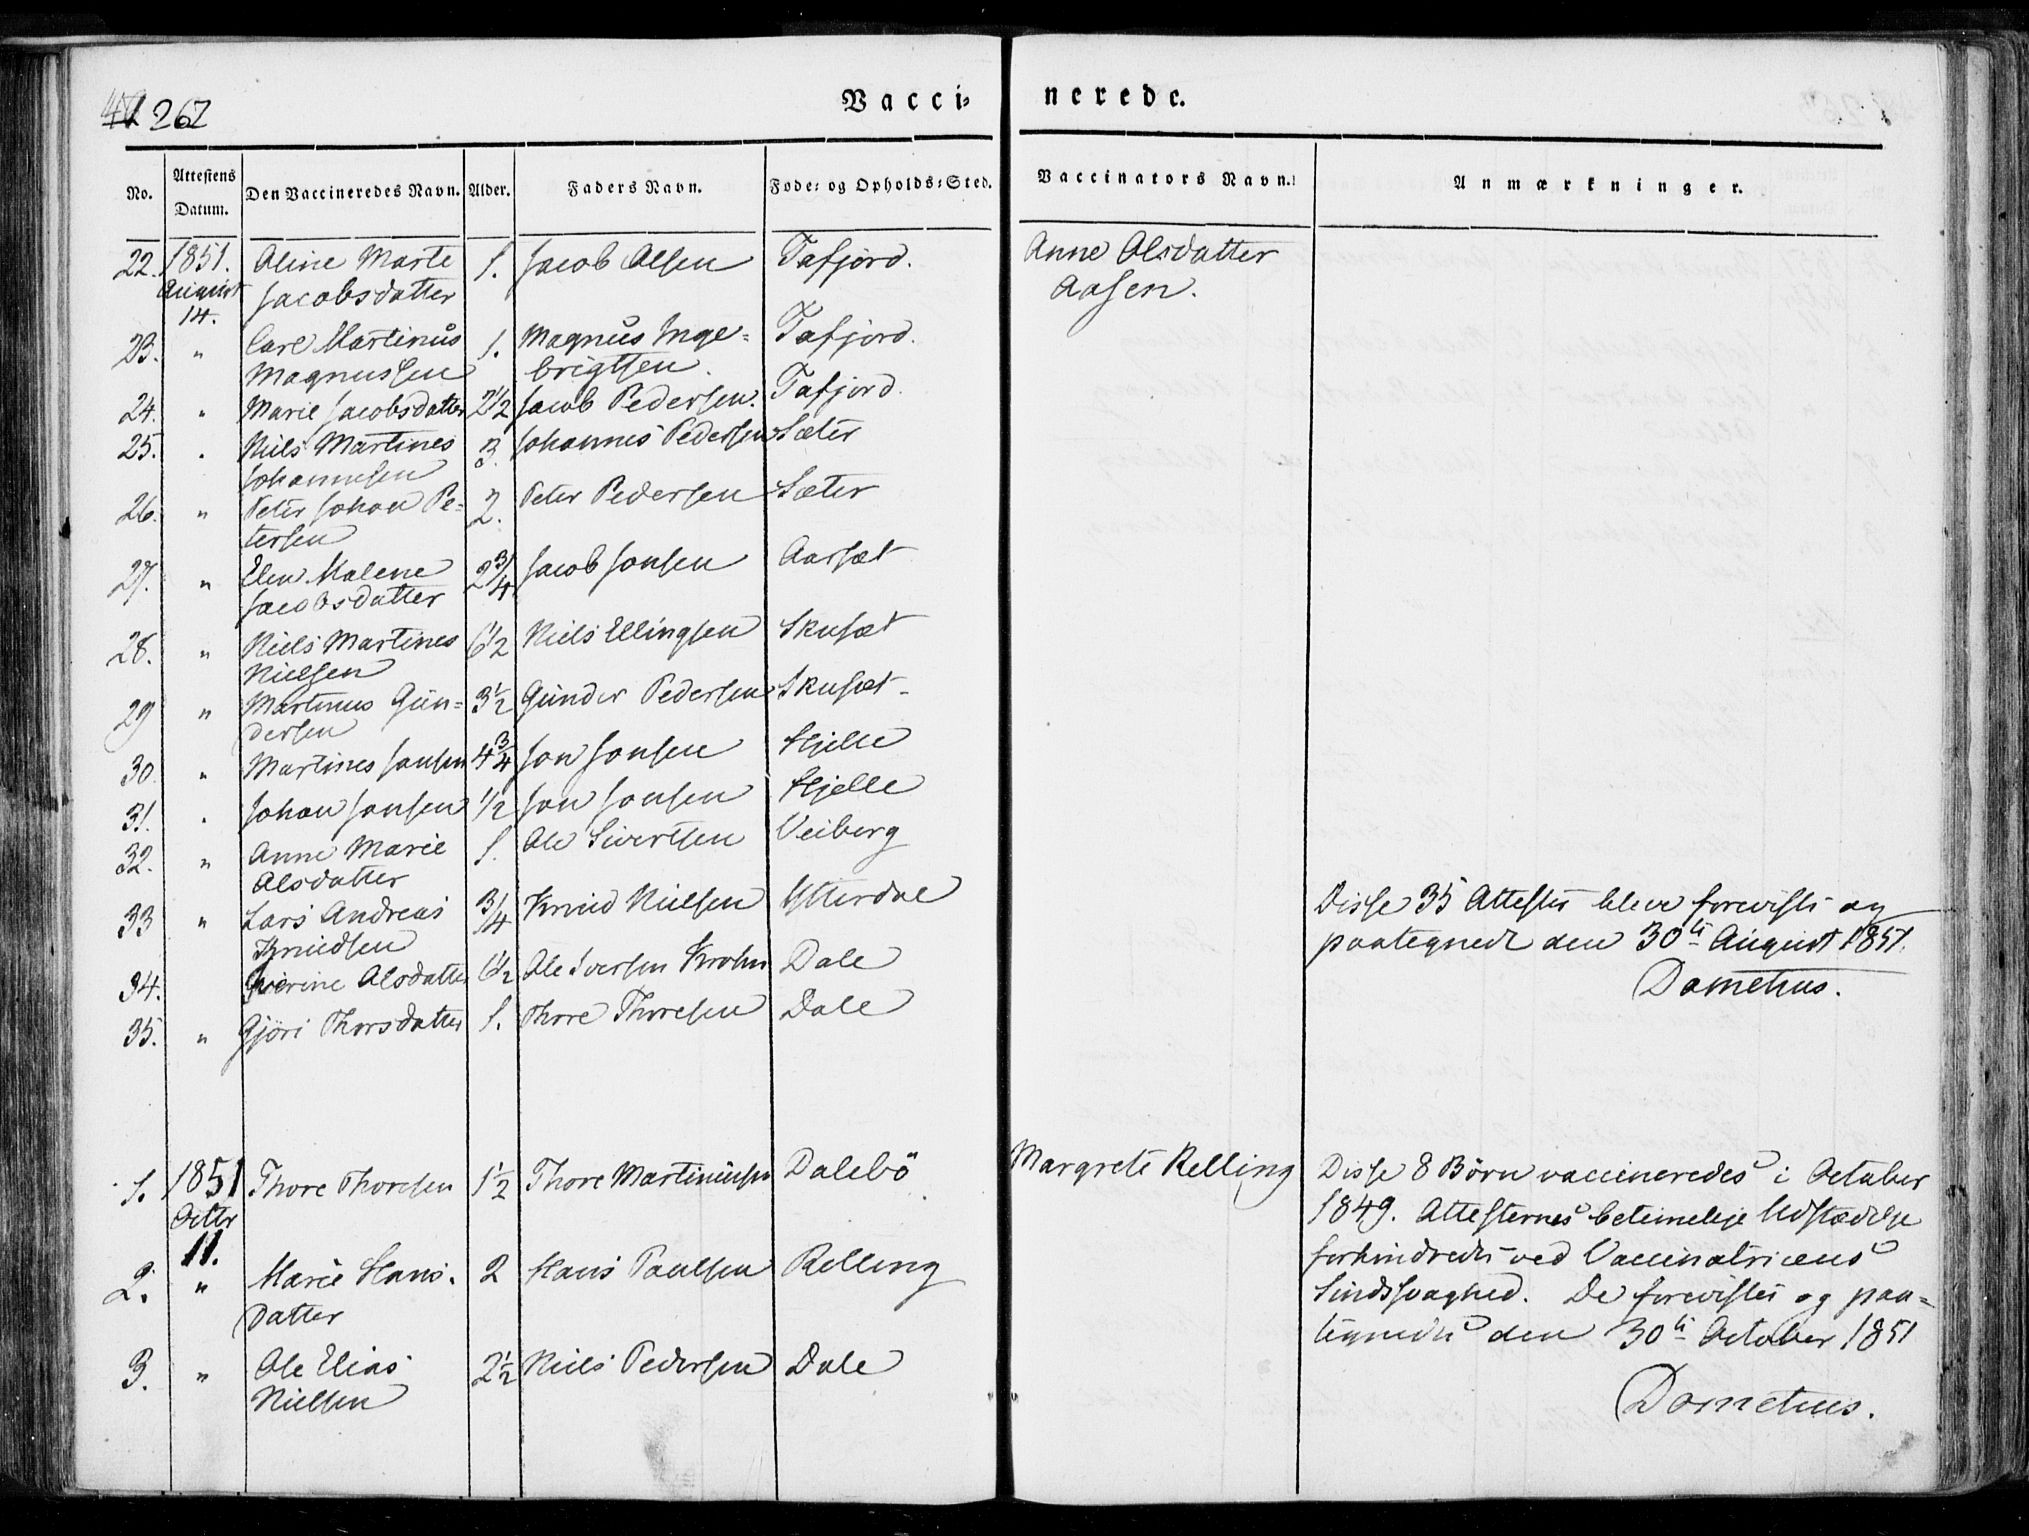 262
Vacci=
nerede.
No. Attestens Datum. Den Vaccineredes Navn. Alder. Faders Navn. Føde= og Opholds=Sted. Vaccinators Navn. Anmærkninger.
22. 1851. Aline Marte 1. Jacob Olsen Tafjord. Anne Olsdatter
August Jacobsdatter Aasen.
14.
23. " Carl Martinus 1. Magnus Inge= Tafjord.
Magnussen brigtsen.
24. " Marie Jacobsdatter 2 1/2 Jacob Pedersen. Tafjord.
25. " Niels Martines 3. Johannes Pedersen Sæter
Johannesen
26. " Peter Johan Pe= 2. Peter Pedersen Sæter
tersen
27. " Elen Malene 2 3/4 Jacob Jonsen Aarsæt
Jacobsdatter
28. " Niels Martines 6 1/2 Niels Ellingsen Skusæt
Nielsen
29 " Martinus Gun= 3 1/2 Gunder Pedersen Skusæt
dersen
30 " Martines Jonsen 4 3/4 Jon Jonsen Hjelle
31. " Johan Jonsen 1/2 Jon Jonsen Hjelle
32. " Anne Marie 1. Ole Sivertsen Veiberg
Olsdatter
33 " Lars Andreas 3/4 Knud Nielsen Ytterdal Disse 35 Attester bleve foreviste og
Knudsen paategnede den 30te August 1851.
34. Olsdatter 6 1/2 Ole Iversen Krohn Dale Dometius.
35. " Gjöri Thorsdatter 1. Thore Thoresen Dale
1. 1851 Thore Thoresen 1 1/2 Thore Martinusen Dalebö Margrete Relling Disse 8 Börn vaccineredes i October
Octbr 1849. Attesternes betimelige Udstædelse
11. forhindredes ved Vaccinatricens
2. " Marie Hans= 2 Hans Paulsen Relling Sindssvaghed. De forevistes og paa=
datter tegnedes den 30te October 1851
3. " Ole Elias 2 1/2 Niels Pedersen Dale
Nielsen Dometius.